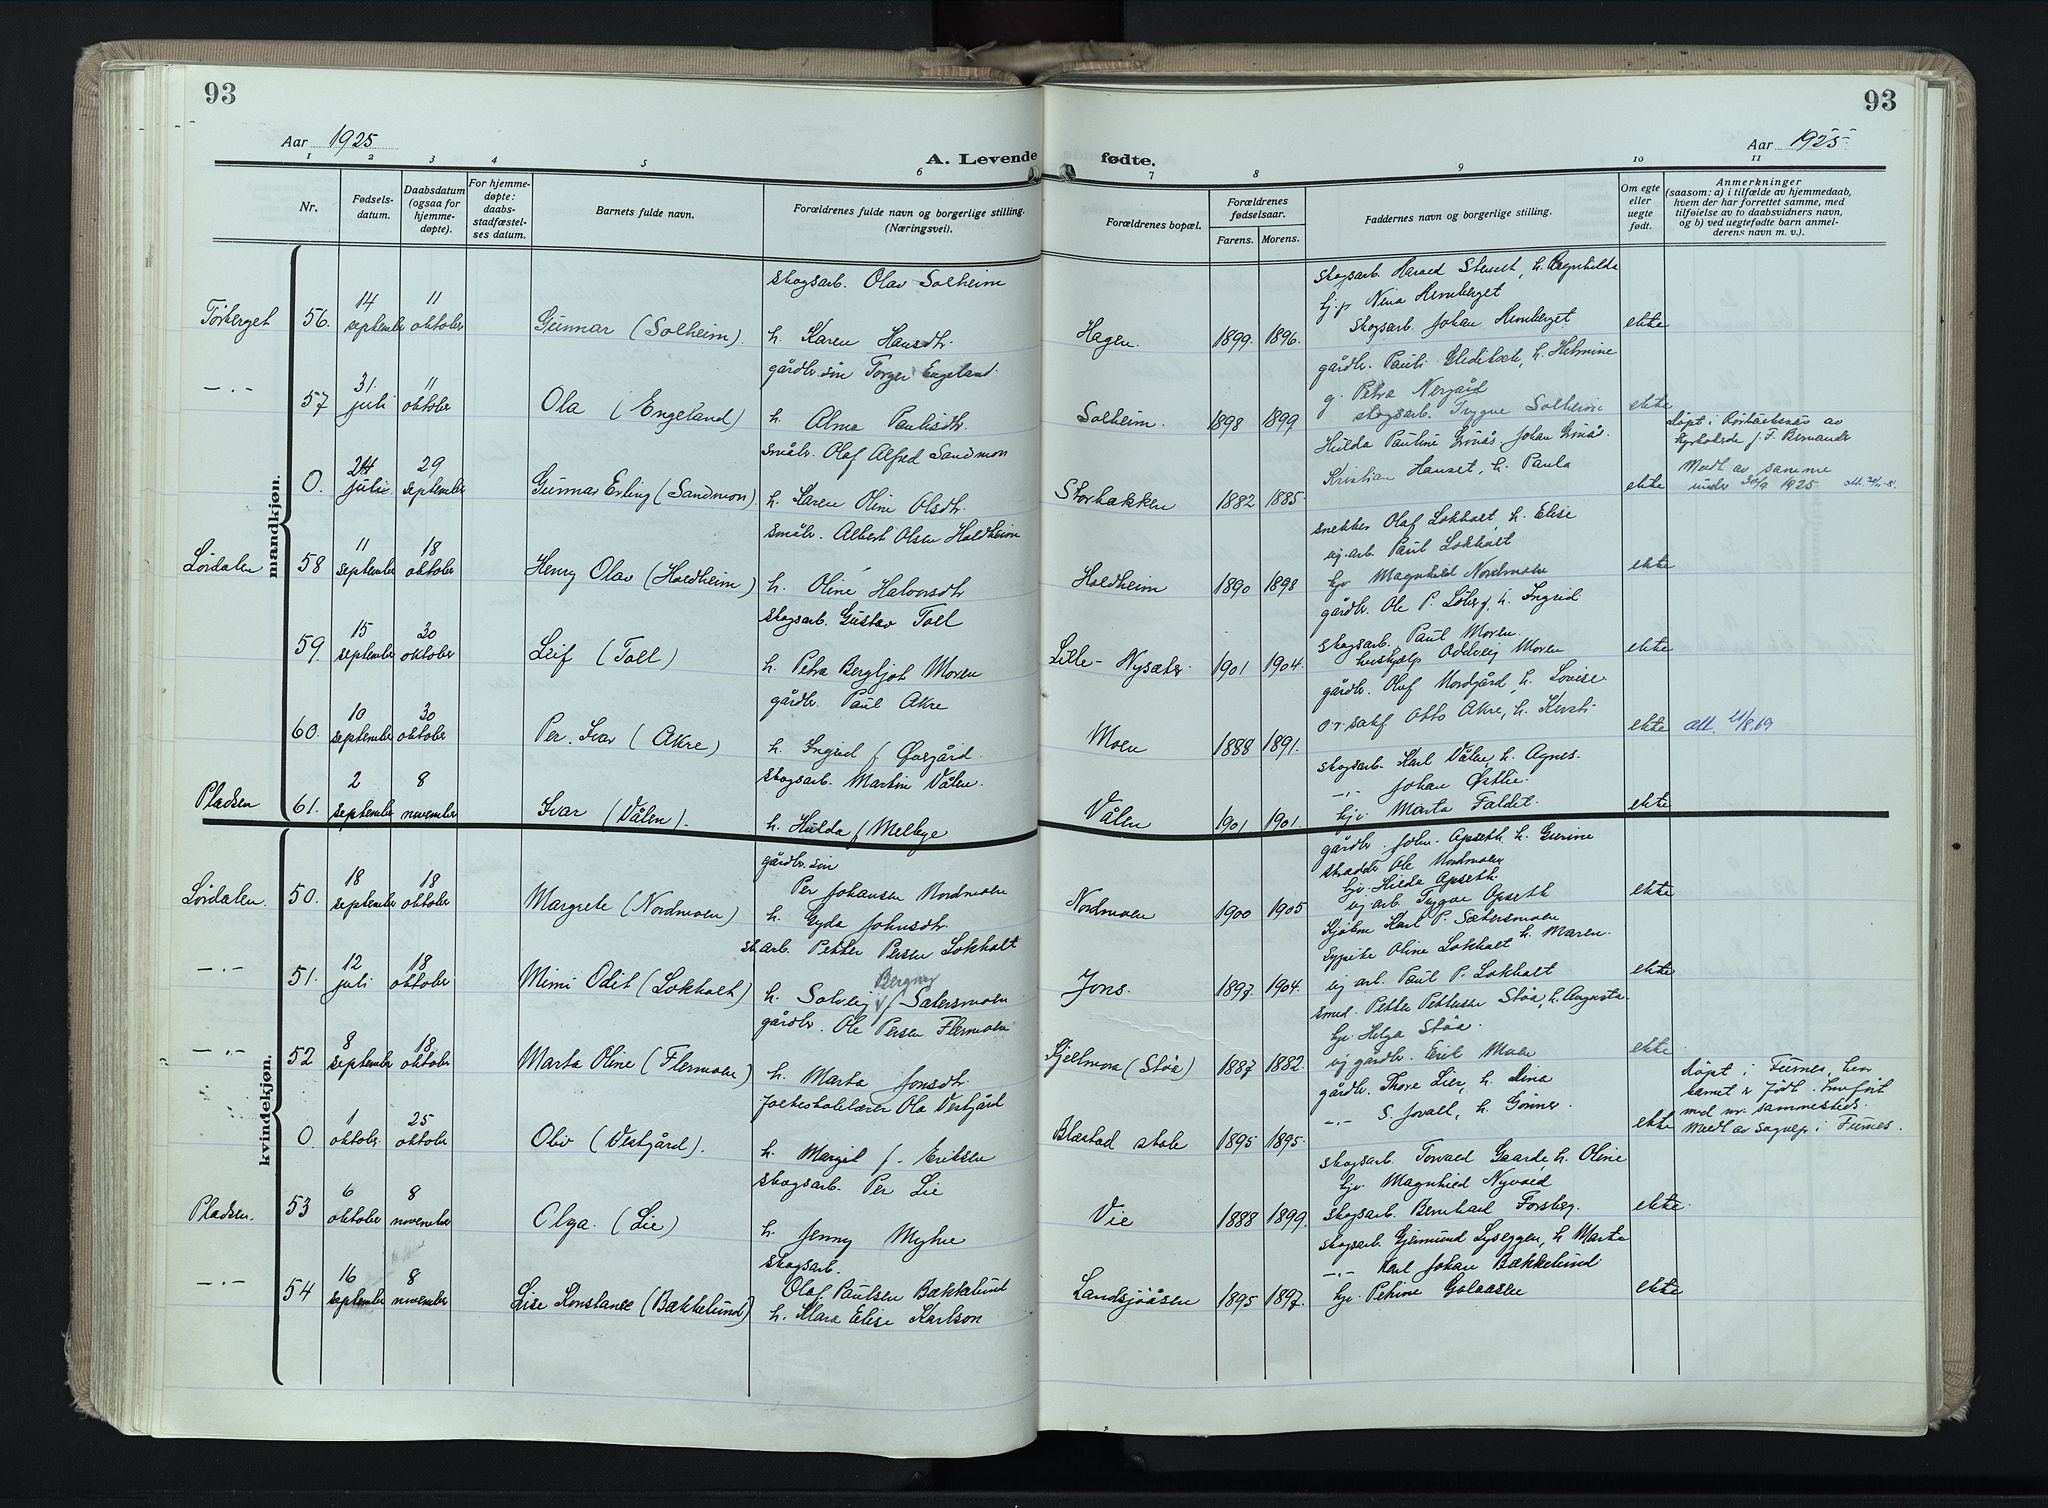 93
93
Aar 1925
A. Levende fødte.
Aar 1925
1 2 3 4 5 6 7 8 9 10 11
Nr.
Fødsels-
datum.
Daabsdatum
(ogsaa for
hjemme-
døpte).
For hjemme-
døpte:
daabs-
stadfæstel-
ses datum.
Barnets fulde navn.
Forældrenes fulde navn og borgerlige stilling.
(Næringsvei).
Forældrenes bopæl.
Forældrenes
fødselsaar.
Farens. Morens.
Faddernes navn og borgerlige stilling.
Om egte
eller
uegte
født.
Anmerkninger
(saasom: a) i tilfælde av hjemmedaab,
hvem der har forrettet samme, med
tilføielse av to daabsvidners navn,
og b) ved uegtefødte barn anmel-
derens navn m. v.).
mandkjøn.
Tørberget
56.
14
september
11
oktober
Gunnar (Solheim).
skogsarb. Olav Solheim
h. Karen Hansdtr.
Hagen.
1899. 1896.
skogsarb. Harald Stenset, h. Ragnhilda
hj.p Nina Hemberget
skogsarb. Johan Hemberget
ekte
— . —
57
31.
juli
11
oktober
Ola (Engeland)
gårdbr. søn Torger Engeland.
h. Alma Paulisdtr.
Solheim.
1898 1899
gårdbr. Pauli Gleditsch, h. Helmine
g. Petra Nergård
skogsarb. Trygve Solheim
ekte
0.
24
juli
29
september
Gunnar Erling (Sandmon)
småbr. Olaf Alfred Sandmon
h. Karen Oline Olsdtr.
Storbakken
1882 1885
Hulda Pauline Grnås Johan Grnås.
Kristian Hanset, h. Paula
ekte
døpt i av
F. Bernander
Medt av samme
under 30/9 1925
Lørdalen
58
11
september
18
oktober
Henry Olav (Holdheim)
småbr. Albert Olsen Holdheim
h. Oline Halvorsdtr
Holdheim
1890 1898
snekker Olaf Lokholt, h. Elise
ug. arb. Paul Lokholt
hj. Magnhild Nordmoen
ekte
59.
15
september
30
oktober
Leif (Toll)
skogsarb. Gustav Toll
h. Petra Bergljot Moren
Lille-Nysæter
1901 1904.
gårdbr. Ole P. Løberg, h. Ingrid
skogsarb. Paul Moren.
hushjælp Oddveig Moren
ekte
60.
10
september
30
oktober
Per. Ivar (Akre)
gårdbr. Paul Akre
h. Ingrid f Øvergård.
Moen
1888 1891.
gårdbr. Olaf Nordgård, h. Lovise.
Otto Akre, h. Kersti
ekte
att. 21/8.69
Pladsen
61.
2
september
8
november
Ivar (Vålen).
skogsarb. Martin Vålen.
h. Hulda f Melbye
Vålen
1901 1901.
skogsarb. Karl Vålen, h. Agnes.
—.— Johan Østlie.
hj. Marta Faldet.
ekte
kvindekjøn.
Lørdalen.
50.
18
september
18
oktober
Margrete (Nordmoen)
gårdbr. søn
Per Johansen Nordmoen
h. Gyda Johnsdtr.
Nordmoen
1900 1905
gårdbr. John Apseth h. Gurine
skrædder Ole Nordmoen
hj. Hilda Apseth.
ug arb Trygve Apseth
ekte
— . —
51.
12
juli
18
oktober
Mimi Odit (Lokholt)
sk.arb. Petter Persen Lokholt
h. Solveig f Sætersmoen
Jons.
1897. 1904.
Kjøbm Karl P. Sætersmoen
h. Maren.
Sypike Oline Lokholt
ug arb. Paul P. Lokholt
ekte
— . —
52
8
september
18
oktober
Marta Oline (Flermoen)
gårdbr. Ole Persen Flermoen
h. Marta Jonsdtr.
Kjellmora (Støa)
1887 1882.
smed. Petter Pettersen Støa, h. Augusta.
hj. Helga Støa.
ug gårdbr. Erik Moen
ekte
0
1
oktober
25
oktober
Oliv (Vestgård).
folkeskolelærer Ola Vestgård
h. Margit f. Eriksen
Blæstad skole
1895 1895.
gårdbr. Thore Lier, h. Dina
—.— S. Jovall, h. Gunner.
ekte
døpt i Furnes, hvor
samet er født. Innført
med nr. sammesteds.
Medt av sognep i Furnes.
Pladsen.
53
6
oktober
8
november
Olga. (Lie)
skogsarb. Per Lie
h. Jenny Myhre
Vie
1888 1899.
skogsarb. Torvald Gaarde, h. Oline
hj. Magnhild Nyvold
skogsarb. Bernhard Forsberg.
ekte
— . —
54
16
september
8
november
Lise Konstanse (Bækkelund)
skogsarb.
Olaf Paulsen Bækkelund
h. Klara Elise Karlson
Landsjøåsen
1895 1897.
skogsarb. Gjermund Lyseggen, h. Marta
—.— Karl Johan Bækkelund
hj. Petrine Golaasen
ekte